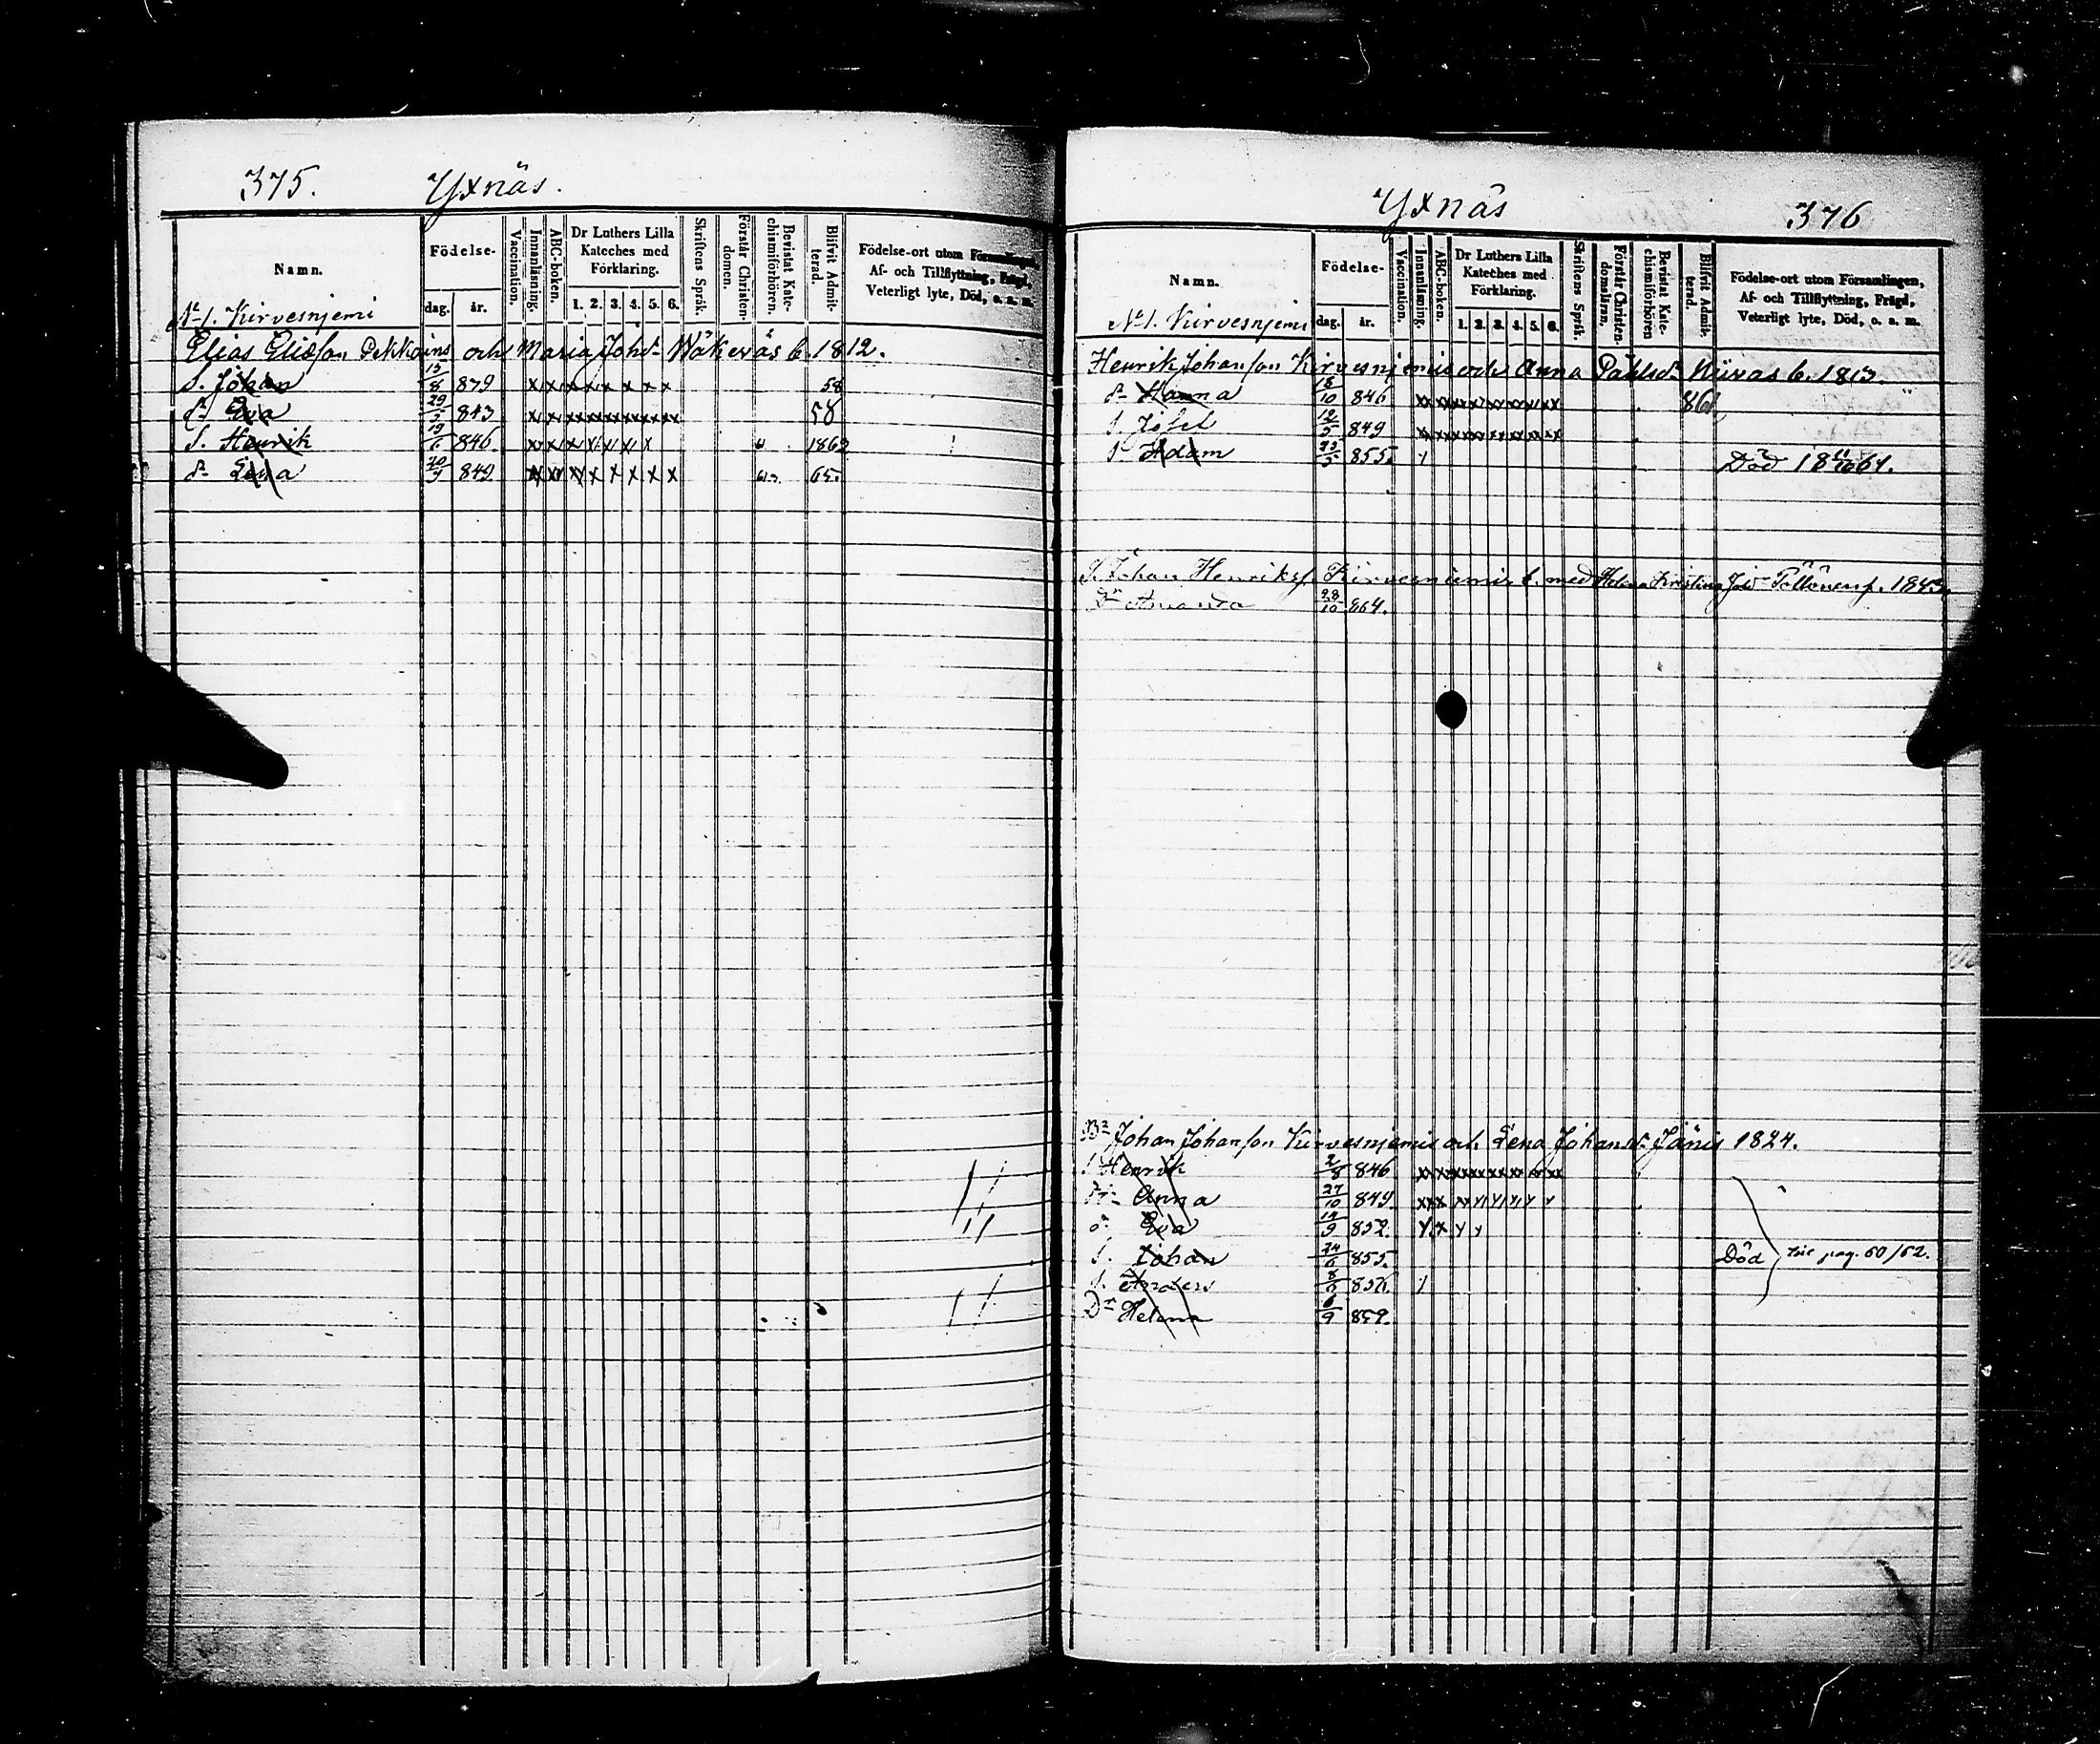 375. Yxnäs.
Namn. Födelse- dag. år. Vaccination. Innanläsning. ABC-boken. Dr Luthers Lilla Kateches med Förklaring. 1. 2. 3. 4. 5. 6. Skriftens Språk. Förstår Christendomen. Bevistat Katechismiförhören. Blifvit Admitterad. Födelse-ort utom Församlingen, Af- och Tillflyttning, Frägd, Veterligt lyte, Död, o. a. m.
No 1. Kirvesnjemi
Elias Eliasson Pekkoins och Maria Johsdr Wäkeväs b. 1812.
S. Johan 15/8 839 x x x x x x x x 58
dr Eva 29/5 843 x x x x x x x x 58
S. Henrik 19/6 846. x x x x x x x x 1862
dr Lena 20/9 849. x x x x x x x x 65.
Yxnäs 376
Namn. Födelse- dag. år. Vaccination. Innanläsning. ABC-boken. Dr Luthers Lilla Kateches med Förklaring. 1. 2. 3. 4. 5. 6. Skriftens Språk. Förstår Christendomsläran. Bevistat Katechismiförhören Blifvit Admitterad. Födelse-ort utom Församlingen, Af- och Tillflyttning, Frägd, Veterligt lyte, Död, o. a. m.
No 1. Kirvesnjemi
Henrik Johansson Kirvesnjemis och Anna Påhlsdr b. 1813.
dr Hanna 846 861
S. Josef 12/5 849
S. Adam 855. Död 1861.
S. Johan Henrikss. Kirvesniemis b. med Helena Kristina Johdr 1843.
Dr Amanda 28/10 864.
Br Johan Johansson Kirvesnjemis och Lena Johansdr Jänis 1824.
S Henrik 2/8 846
dr Anna 27/10 849.
dr Eva 852.
S. Johan 24/6 855. Död
S. Anders 8/6 856.
Dr Helena 6/9 859.
pag. 60/62.